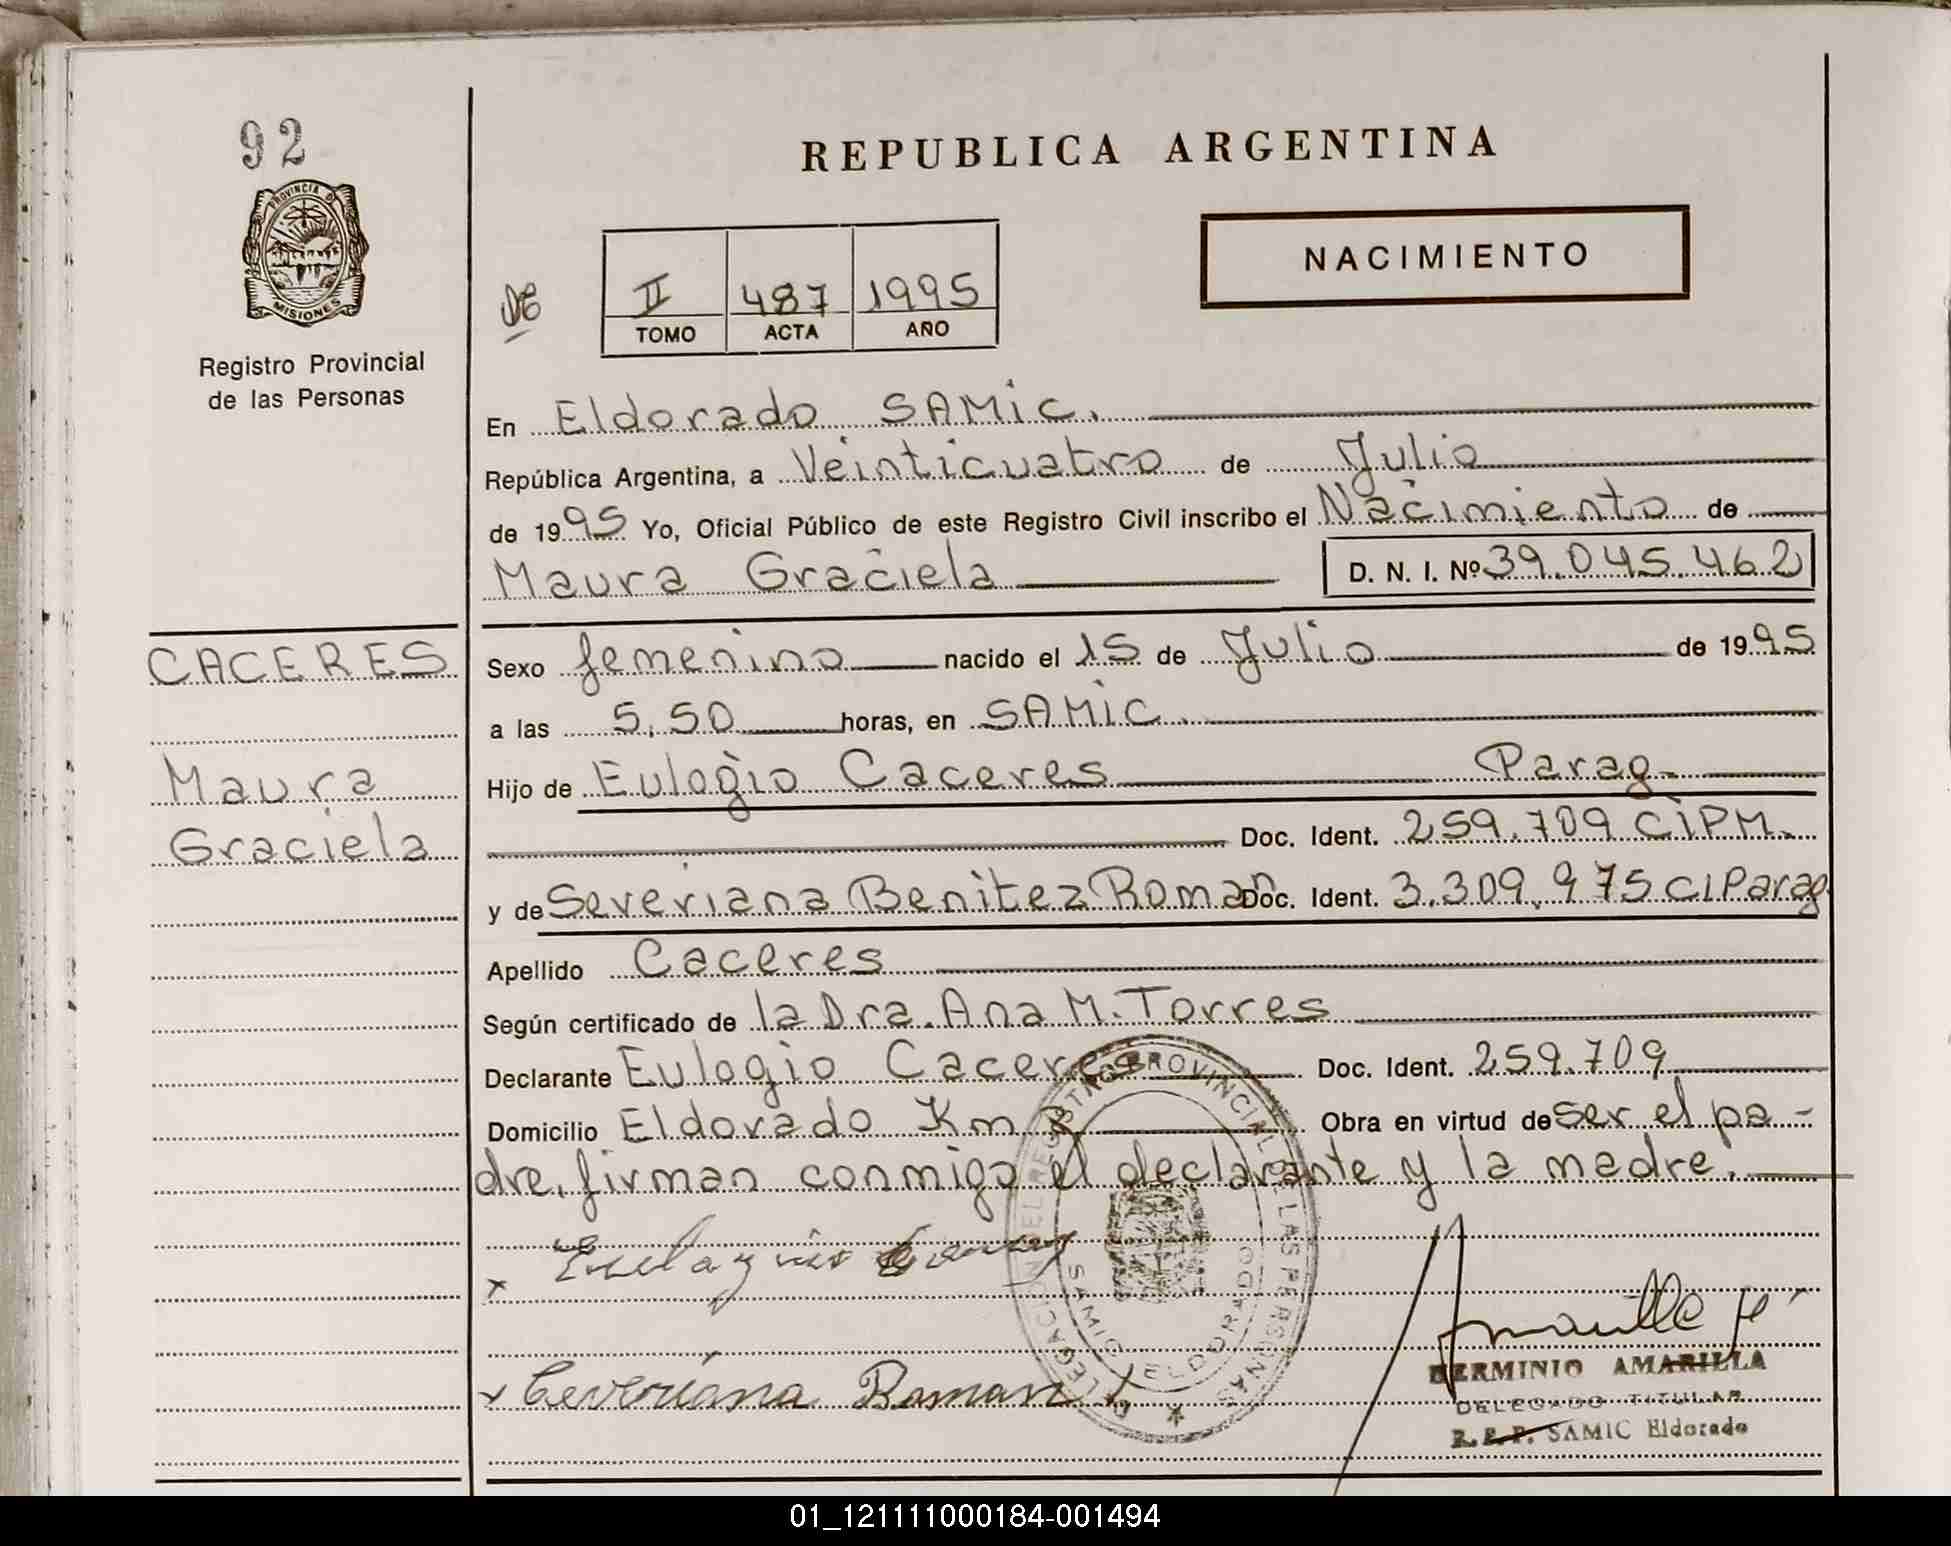 92
PROVINCIA DE
MISIONES
Registro Provincial
de las Personas
REPUBLICA ARGENTINA
NACIMIENTO
II 487 1995
TOMO ACTA AÑO
En Eldorado SAMIC.
República Argentina, a Veinticuatro de Julio
de 1995 Yo, Oficial Público de este Registro Civil inscribo el Nacimiento de
Maura Graciela D. N. I. Nº 39.045.462
CACERES
Maura
Graciela
Sexo femenino nacido el 15 de Julio de 1995
a las 5,50 horas, en SAMIC.
Hijo de Eulogio Caceres Parag.
Doc. Ident. 259.709 CIPM.
y de Severiana Benitez Roman Doc. Ident. 3.309.975 CI Parag.
Apellido Caceres
Según certificado de la Dra. Ana M. Torres
Declarante Eulogio Caceres Doc. Ident. 259.709
Domicilio Eldorado Km Obra en virtud de ser el pa-
dre, firman conmigo el declarante y la madre.
x Eulogio
x Ceveriana Roman
DELEGACION DEL REGISTRO PROVINCIAL DE LAS PERSONAS
SAMIC ELDORADO
HERMINIO AMARILLA
DELEGADO TITULAR
R.P.P. SAMIC Eldorado
01_121111000184-001494